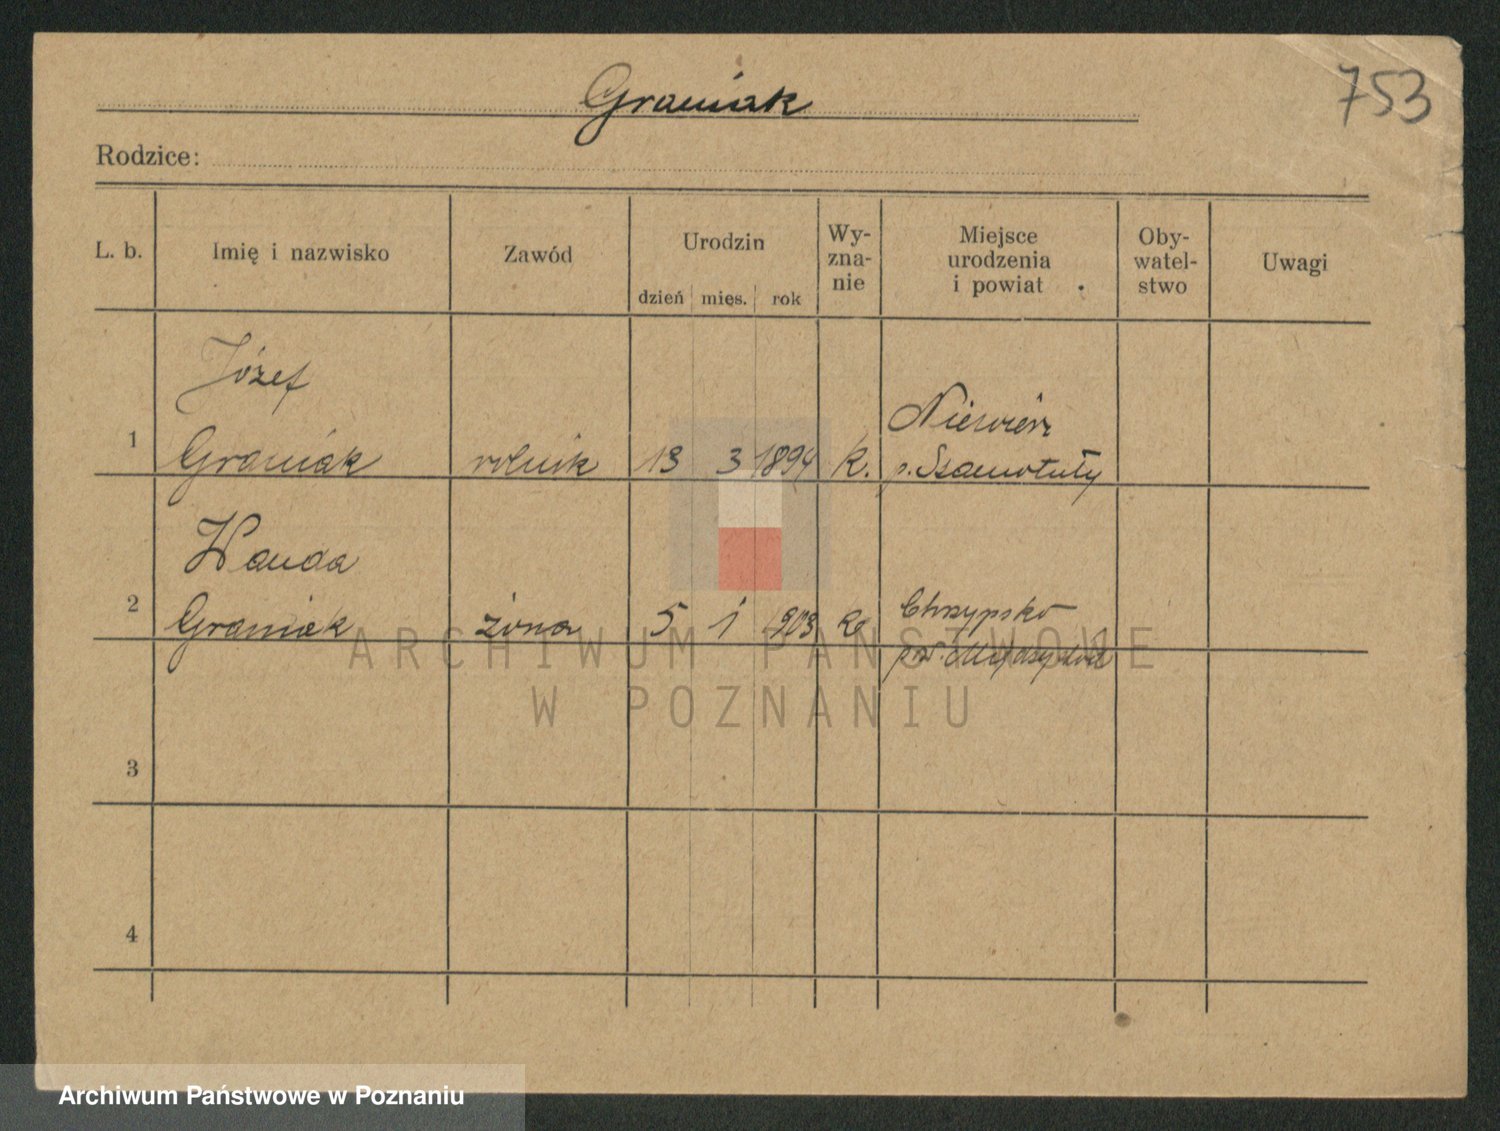 Graniak
753
Rodzice:
L. b.
Imię i nazwisko
Zawód
Urodzin
dzień mięs. rok
Wy-
zna-
nie
Miejsce
urodzenia
i powiat
Oby-
watel-
stwo
Uwagi
1
Józef
Graniak
rolnik
13 3 1894
k.
Niewierz
p. Szamotuły
2
Wanda
Graniak
żona
5 1 903
k.
Chrzypsko
pow. Międzychód
3
4
ARCHIWUM PAŃSTWOWE
W POZNANIU
Archiwum Państwowe w Poznaniu